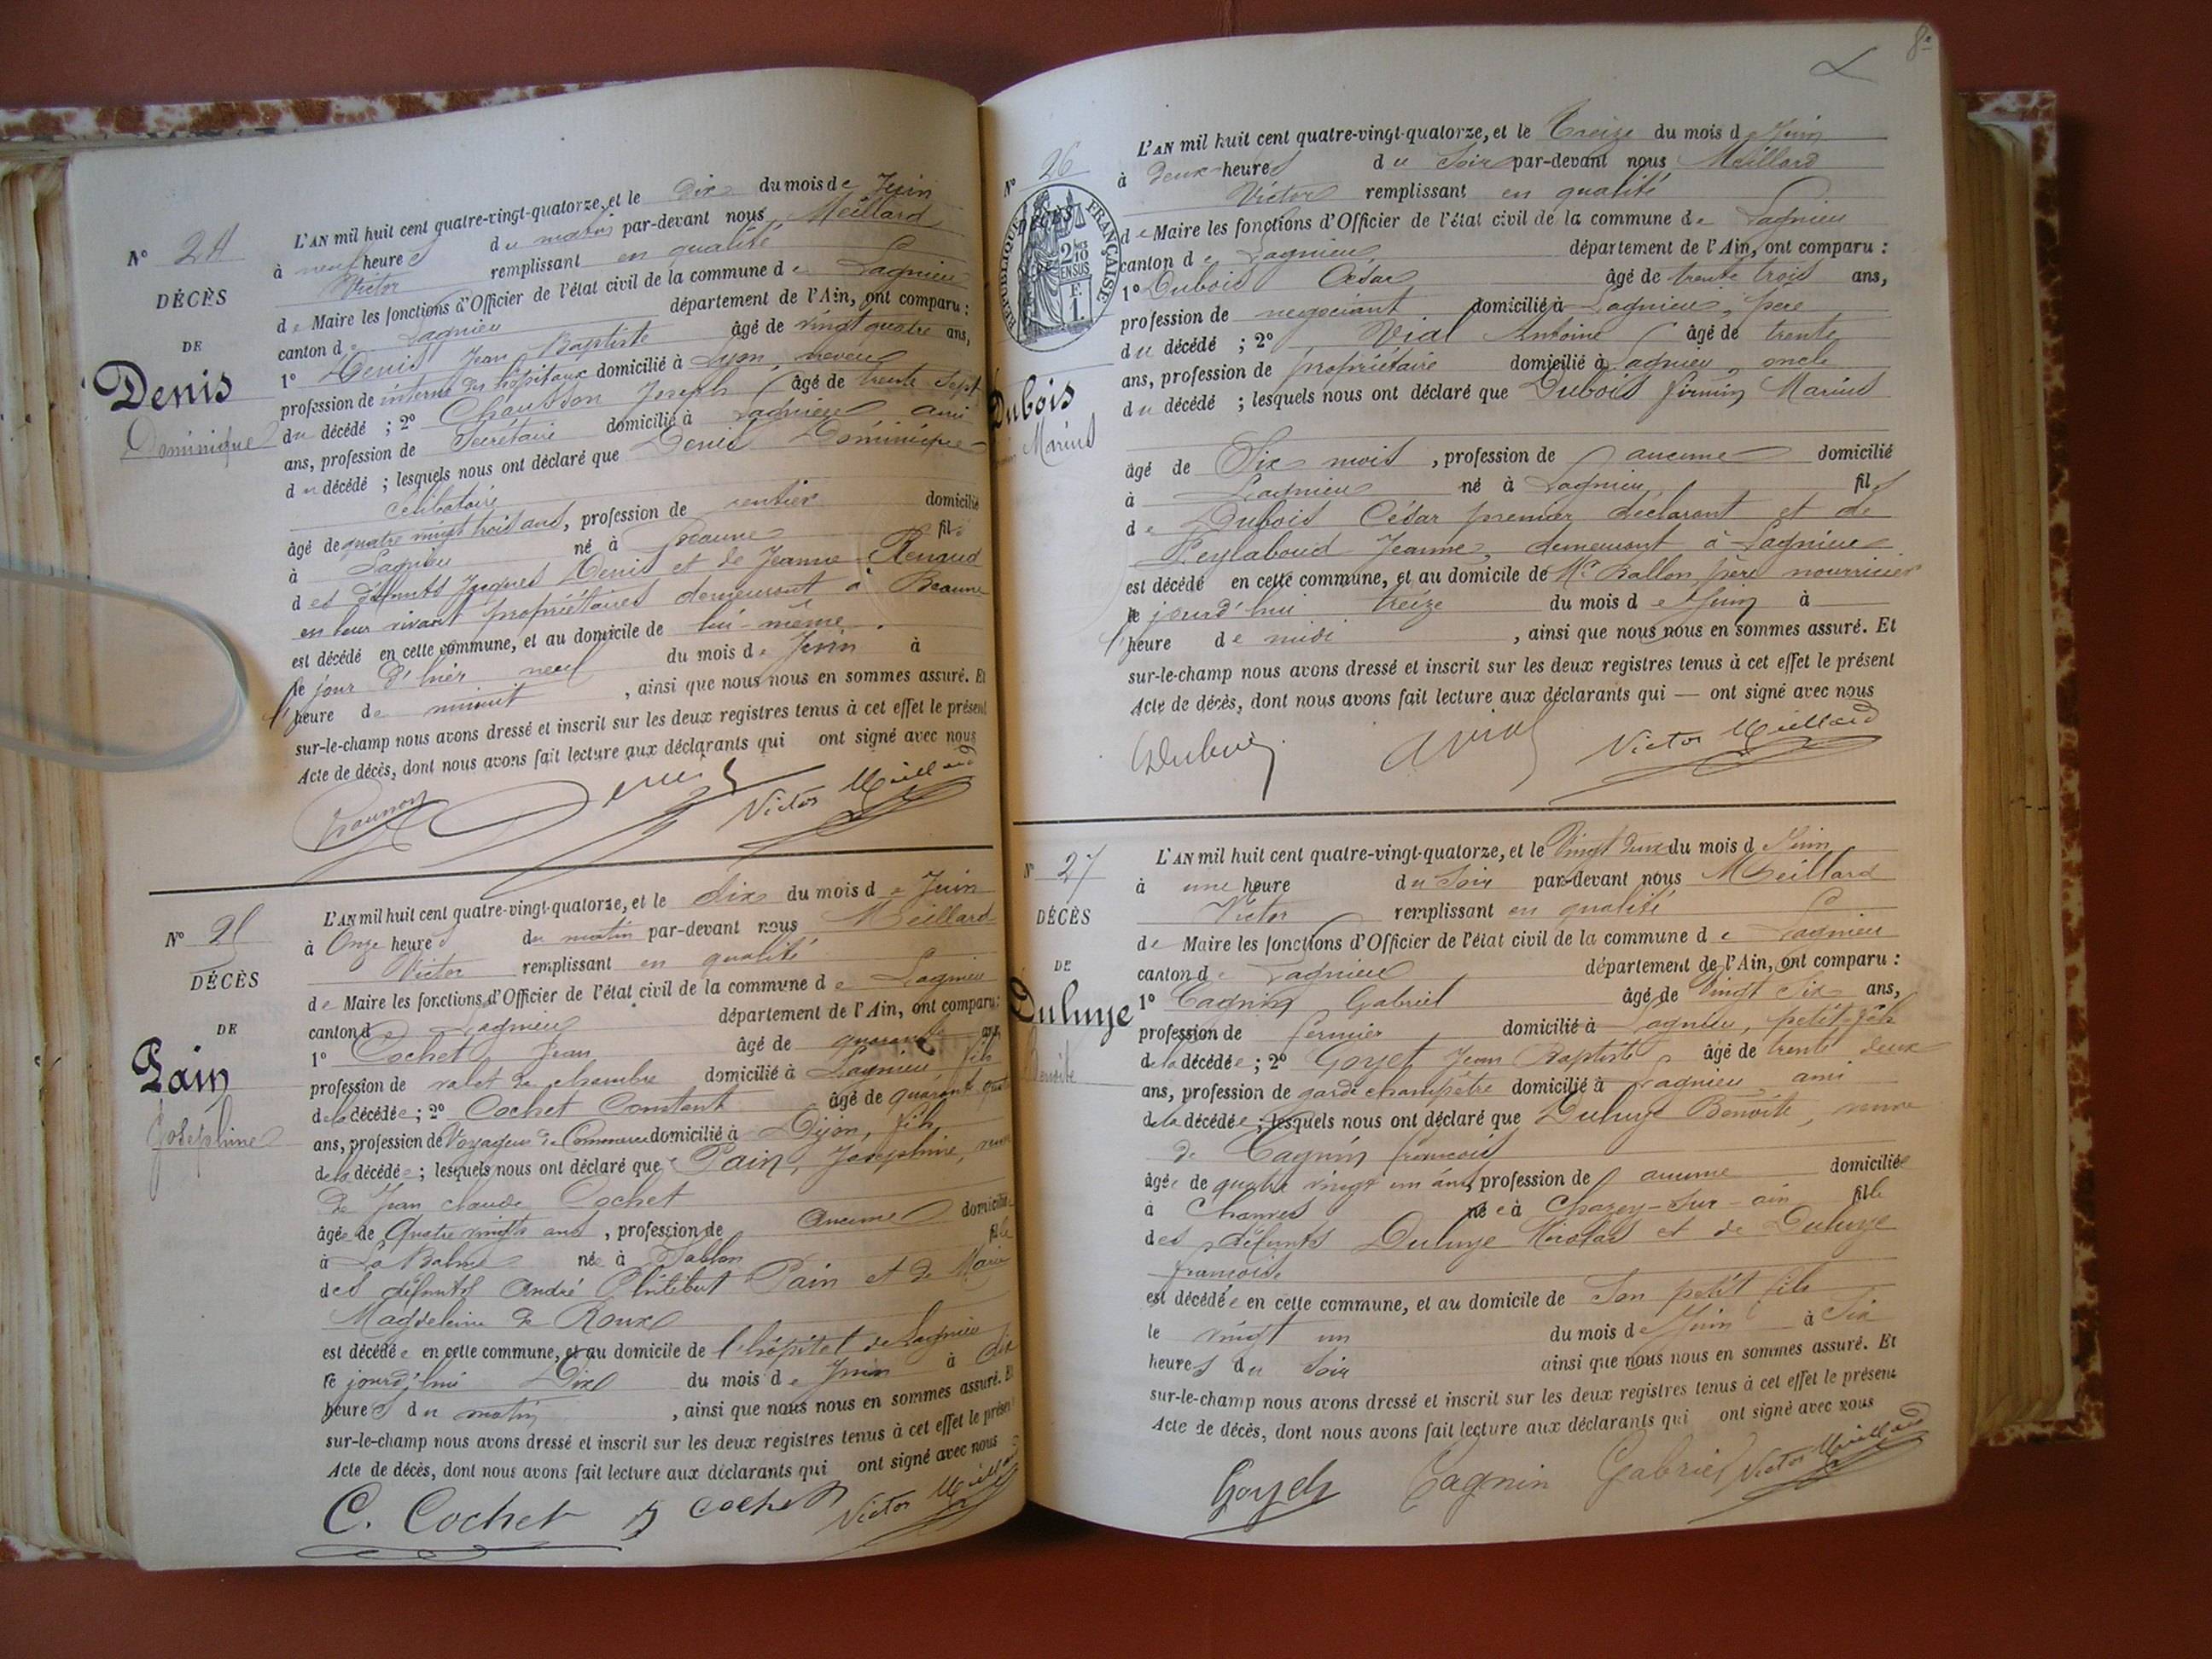 N° 24
DÉCÈS
DE
Denis
Dominique
L'AN mil huit cent quatre-vingt-quatorze, et le Dix du mois de Juin
à neuf heures du matin par-devant nous Meillard
Victor remplissant en qualité
de Maire les fonctions d'Officier de l'état civil de la commune de Lagnieu
canton de Lagnieu département de l'Ain, ont comparu :
1° Denis Jean Baptiste âgé de vingt quatre ans,
profession de interne des hôpitaux domicilié à Lyon, neveu
du décédé ; 2° Chausson Joseph âgé de trente sept
ans, profession de Secrétaire domicilié à Lagnieu ami
du décédé ; lesquels nous ont déclaré que Denis Dominique
célibataire
âgé de quatre vingt trois ans, profession de rentier domicilié
à Lagnieu né à Beaune fils
des défunts Jacques Denis et de Jeanne Renaud
en leur vivant propriétaires demeurant à Beaune
est décédé en cette commune, et au domicile de lui-même
le jour d'hier neuf du mois de Juin à
l'heure de minuit , ainsi que nous nous en sommes assuré. Et
sur-le-champ nous avons dressé et inscrit sur les deux registres tenus à cet effet le présent
Acte de décès, dont nous avons fait lecture aux déclarants qui ont signé avec nous
Denis Victor Meillard
N° 25
DÉCÈS
DE
Pain
Joséphine
L'AN mil huit cent quatre-vingt-quatorze, et le dix du mois de Juin
à Onze heures du matin par-devant nous Meillard
Victor remplissant en qualité
de Maire les fonctions d'Officier de l'état civil de la commune de Lagnieu
canton de Lagnieu département de l'Ain, ont comparu :
1° Cochet Jean âgé de quarante ans,
profession de valet de chambre domicilié à Lagnieu, fils
de la décédée ; 2° Cochet Constant âgé de quarante
ans, profession de Voyageur de Commerce domicilié à Dijon, fils
de la décédée ; lesquels nous ont déclaré que Pain, Joséphine, veuve
de Jean claude Cochet
âgée de Quatre vingts ans , profession de Aucune domiciliée
à La Balme née à Sablon fille
des défunts André Philibert Pain et de Marie
Magdeleine de Roux
est décédée en cette commune, et au domicile de l'hôpital de Lagnieu
le jourd'hui Dix du mois de Juin à dix
heures du matin , ainsi que nous nous en sommes assuré. Et
sur-le-champ nous avons dressé et inscrit sur les deux registres tenus à cet effet le présent
Acte de décès, dont nous avons fait lecture aux déclarants qui ont signé avec nous
C. Cochet J Cochet Victor Meillard
8e
N° 26
DÉCÈS
RÉPUBLIQUE FRANÇAISE
2/10 EN SUS
F. 1.
Dubois
Marius
L'AN mil huit cent quatre-vingt-quatorze, et le Treize du mois de Juin
à deux heures du Soir par-devant nous Meillard
Victor remplissant en qualité
de Maire les fonctions d'Officier de l'état civil de la commune de Lagnieu
canton de Lagnieu département de l'Ain, ont comparu :
1° Dubois César âgé de trente trois ans,
profession de négociant domicilié à Lagnieu, père
du décédé ; 2° Vial Antoine âgé de trente
ans, profession de propriétaire domicilié à Lagnieu, oncle
du décédé ; lesquels nous ont déclaré que Dubois firmin Marius
âgé de Six mois , profession de aucune domicilié
à Lagnieu né à Lagnieu fils
de Dubois César premier déclarant et de
Peylaboud Jeanne, demeurant à Lagnieu
est décédé en cette commune, et au domicile de Mr Ballon père nourricier
le jourd'hui treize du mois de Juin à
l'heure de midi , ainsi que nous nous en sommes assuré. Et
sur-le-champ nous avons dressé et inscrit sur les deux registres tenus à cet effet le présent
Acte de décès, dont nous avons fait lecture aux déclarants qui — ont signé avec nous
CDubois AVial Victor Meillard
N° 27
DÉCÈS
DE
Duluye
Benoîte
L'AN mil huit cent quatre-vingt-quatorze, et le Vingt deux du mois de Juin
à une heure du Soir par-devant nous Meillard
Victor remplissant en qualité
de Maire les fonctions d'Officier de l'état civil de la commune de Lagnieu
canton de Lagnieu département de l'Ain, ont comparu :
1° Cagnin Gabriel âgé de Vingt Six ans,
profession de fermier domicilié à Lagnieu, petit-fils
de la décédée ; 2° Goyet Jean Baptiste âgé de trente deux
ans, profession de garde champêtre domicilié à Lagnieu, ami
de la décédée ; lesquels nous ont déclaré que Duluye Benoîte, veuve
de Cagnin francois
âgée de quatre vingt un ans, profession de aucune domiciliée
à Chanves née à Chazey-Sur-ain fille
des défunts Duluye Nicolas et de Duluye
francoise
est décédée en cette commune, et au domicile de Son petit fils
le vingt un du mois de Juin à Six
heures du Soir ainsi que nous nous en sommes assuré. Et
sur-le-champ nous avons dressé et inscrit sur les deux registres tenus à cet effet le présent
Acte de décès, dont nous avons fait lecture aux déclarants qui ont signé avec nous
Goyet Cagnin Gabriel Victor Meillard